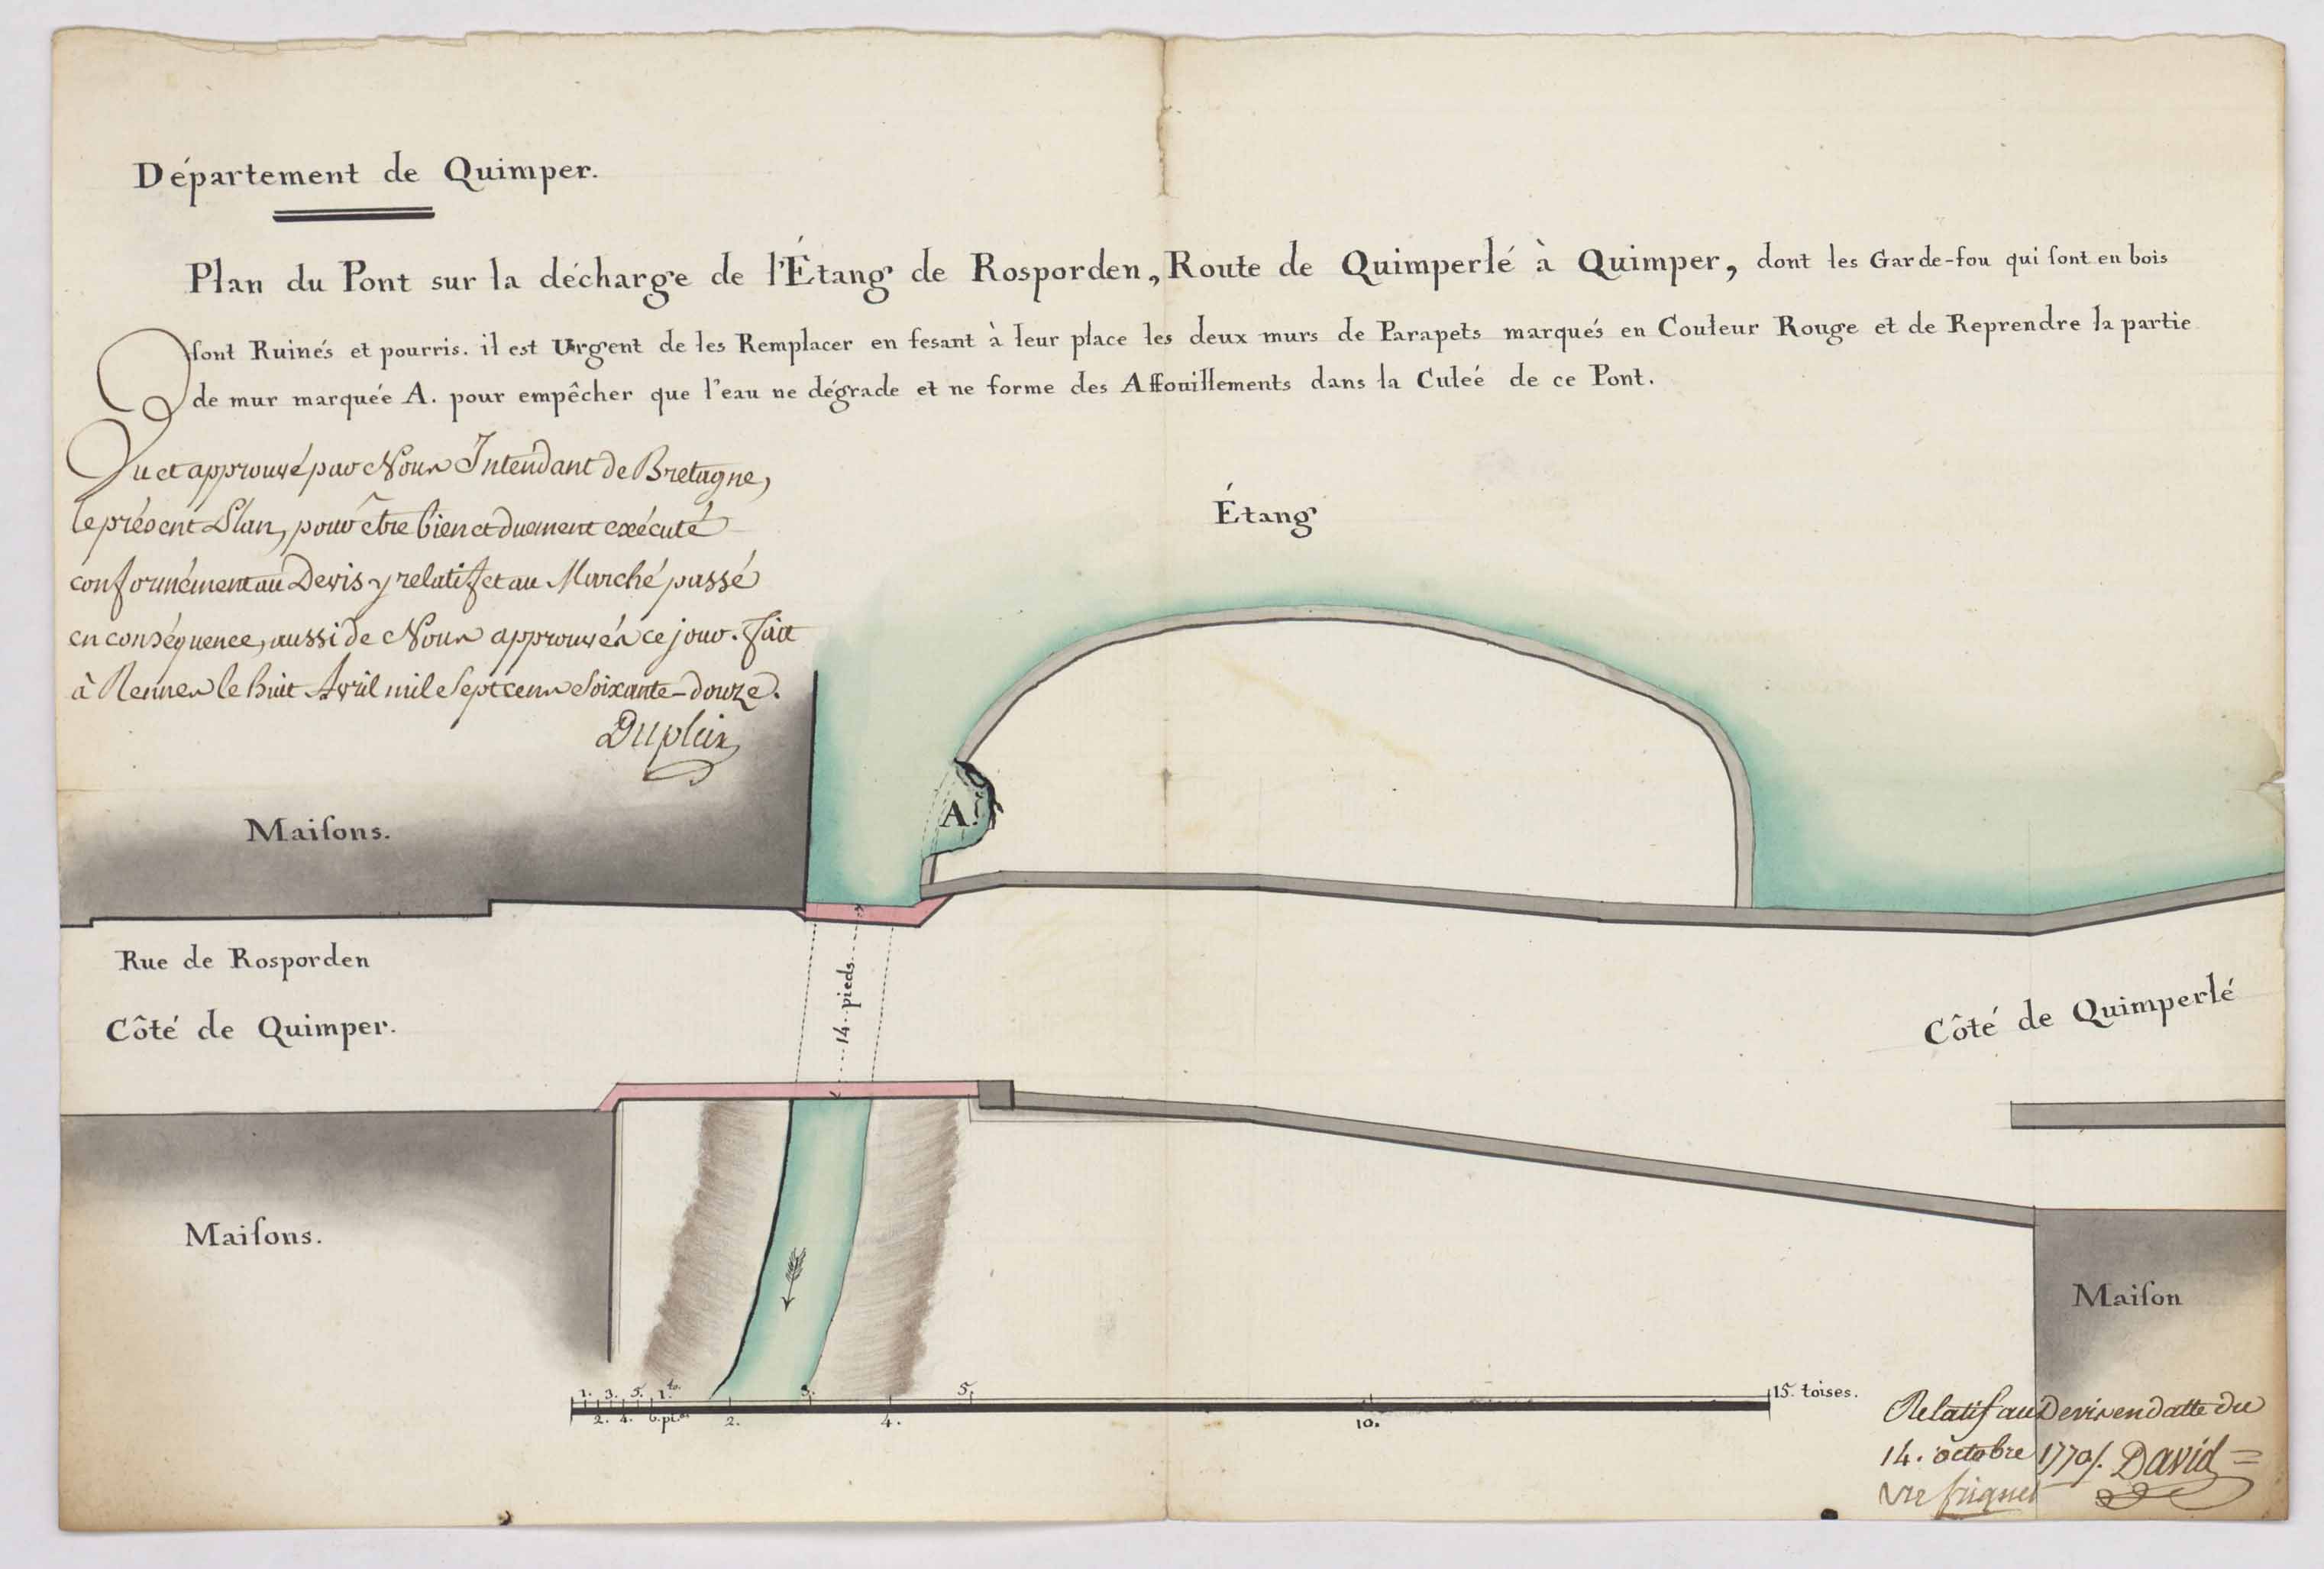 Département de Quimper.
Plan du Pont sur la décharge de l'Étang de Rosporden, Route de Quimperlé à Quimper, dont les Garde-fou qui ſont en bois
ſont Ruinés et pourris. il est Urgent de les Remplacer en fesant à leur place les deux murs de Parapets marqués en Couleur Rouge et de Reprendre la partie
de mur marquée A. pour empêcher que l'eau ne dégrade et ne forme des Affouillements dans la Culeé de ce Pont.
Vu et approuvé par Nous Intendant de Bretagne,
le présent Plan, pour être bien et duement exécuté
conformément au Devis y relatif et au Marché passé
en conséquence, aussi de Nous approuvés ce jour. Fait
à Rennes le huit Avril mil Sept cens Soixante-douze.
Dupleix
Étang
Maiſons.
A.
Rue de Rosporden
Côté de Quimper.
14 pieds
Côté de Quimperlé
Maiſons.
Maiſon
1. 3. 5. 1.to. 3. 5. 15. toises.
2. 4. 6.pi.ds 2. 4. 10.
Relatif au Devis en datte du
14. octobre 1770/. David